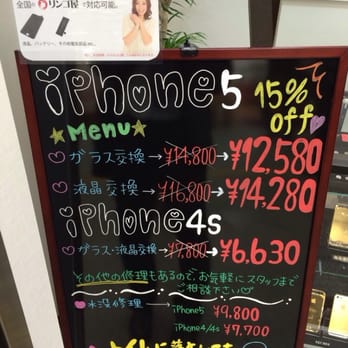 全国の リンゴ屋 で対応可能。
液晶、バッテリー、その他電気部品 etc...
iPhone5
15%
off
★Menu★
ガラス交換→¥14,800→¥12,580
液晶交換→¥16,800→¥14,280
iPhone4s
ガラス・液晶交換→¥7,800→¥6,630
その他の修理もあるので、お気軽にスタッフまで
ご相談下さい♡
水没修理→ iPhone5 ¥9,800
iPhone4/4s ¥7,700